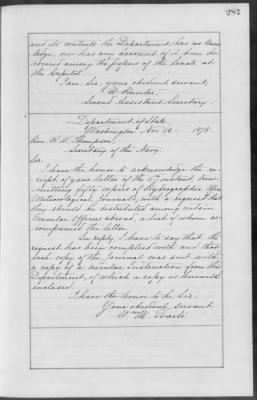 287
and its contents the Department has no know-
ledge, nor has any account of it been dis-
covered among the papers of the Senate at
the Capitol.
I am, Sir, your obedient servant,
W. Hunter,
Second Assistant Secretary.
Department of State
Washington Nov. 16 - 1878
Hon. R. W. Thompson,
Secretary of the Navy.
Sir,
I have the honor to acknowledge the re-
ceipt of your letter of the 5th instant trans-
mitting fifty copies of Hydrographic Office
Meteorological Journals, with a request that
they should be distributed among certain
Consular Officers abroad, a list of whom ac-
companied the letter.
In reply, I have to say that the
request has been complied with and that
each copy of the Journal was sent with
a copy of a circular instruction from this
Department, of which a copy is herewith
inclosed.
I have the honor to be, Sir,
Your obedient servant
Wm. M. Evarts